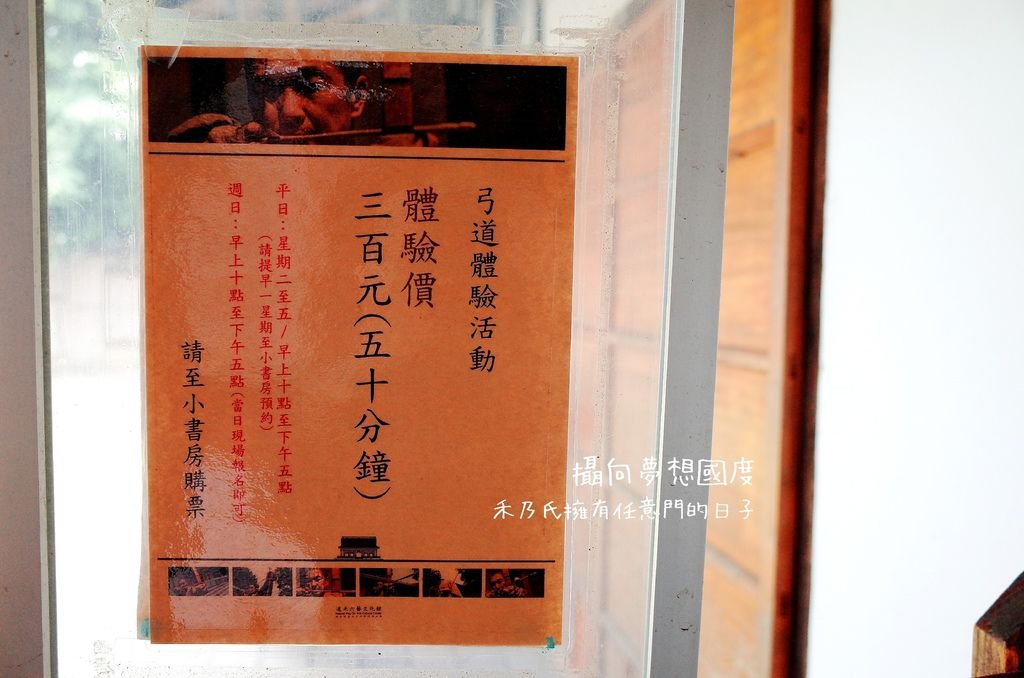 弓道體驗活動
體驗價
三百元(五十分鐘)
平日:星期二至五/早上十點至下午五點
(請提早一星期至小書房預約)
週日:早上十點至下午五點(當日現場報名即可)
請至小書房購票
道禾六藝文化館
攝向夢想國度
禾乃氏擁有任意門的日子